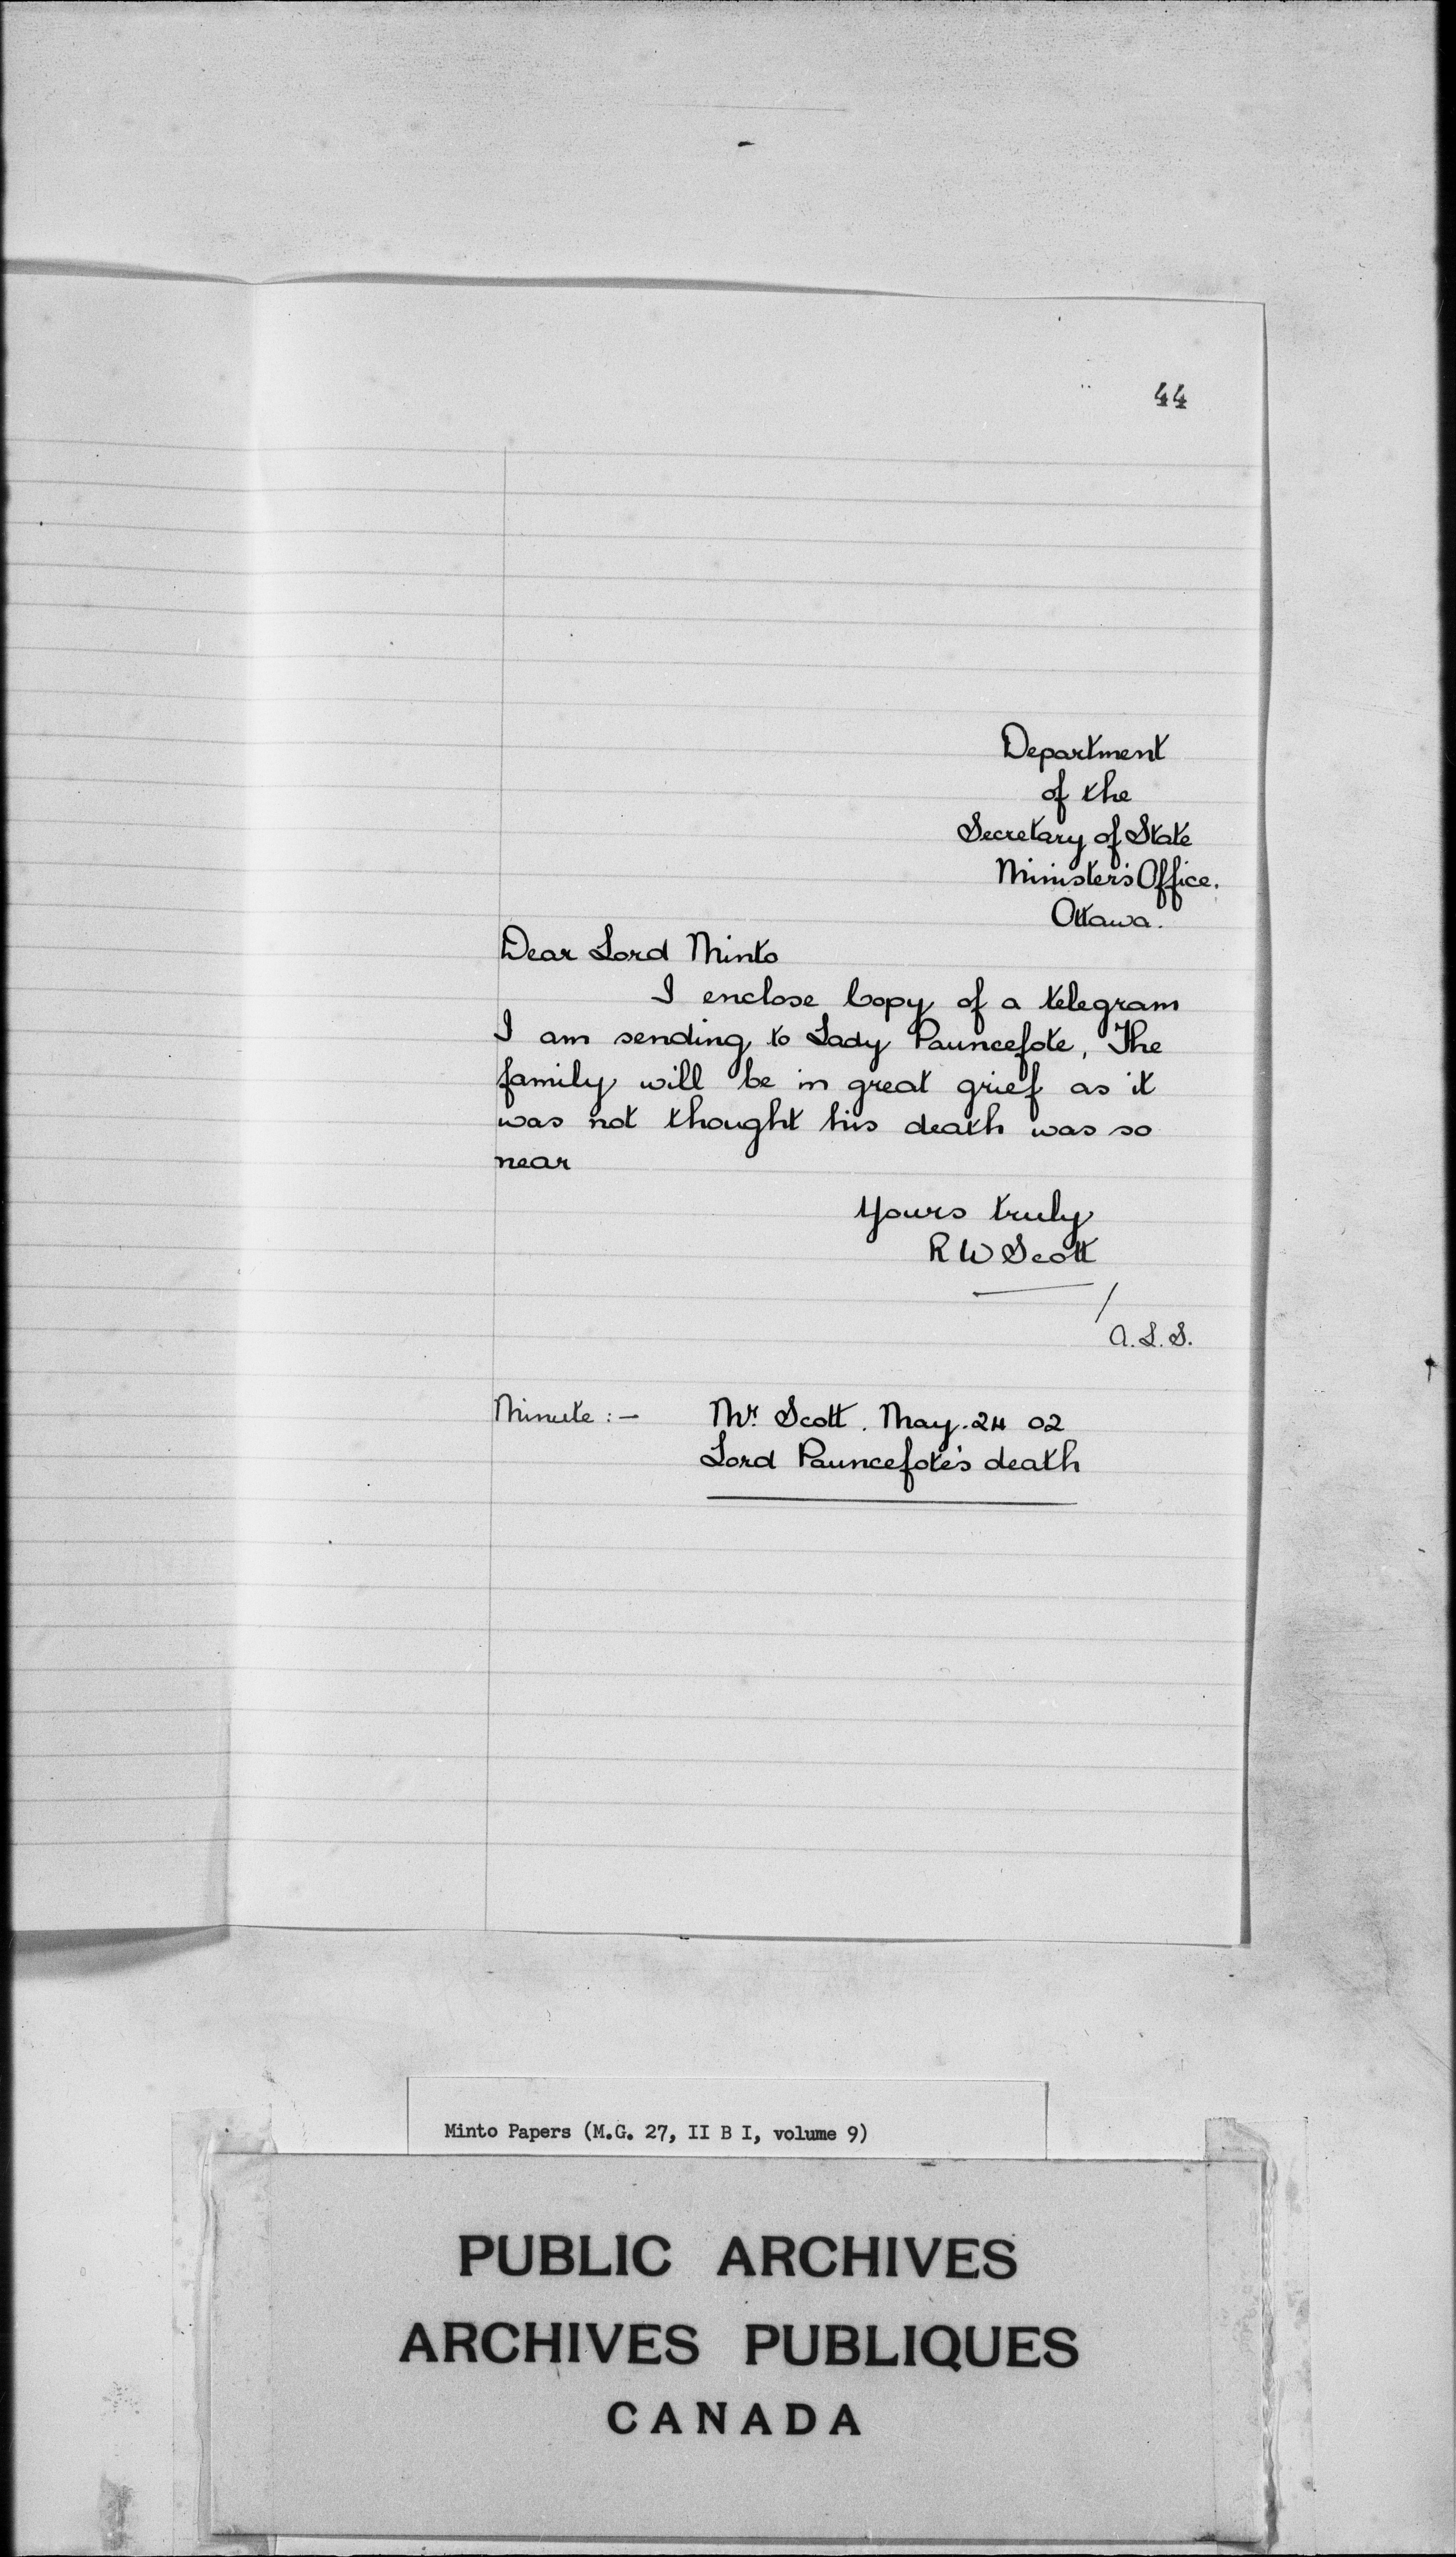 44
Department
of the
Secretary of State
Minister's Office.
Ottawa.
Dear Lord Minto
I enclose Copy of a telegram
I am sending to Lady Pauncefote, The
family will be in great grief as it
was not thought his death was so
near
Yours truly
R W Scott
A.L.S.
Minute :- Mr. Scott. May. 24 02
Lord Pauncefote's death
Minto Papers (M.G. 27, II B I, volume 9)
PUBLIC ARCHIVES
ARCHIVES PUBLIQUES
CANADA